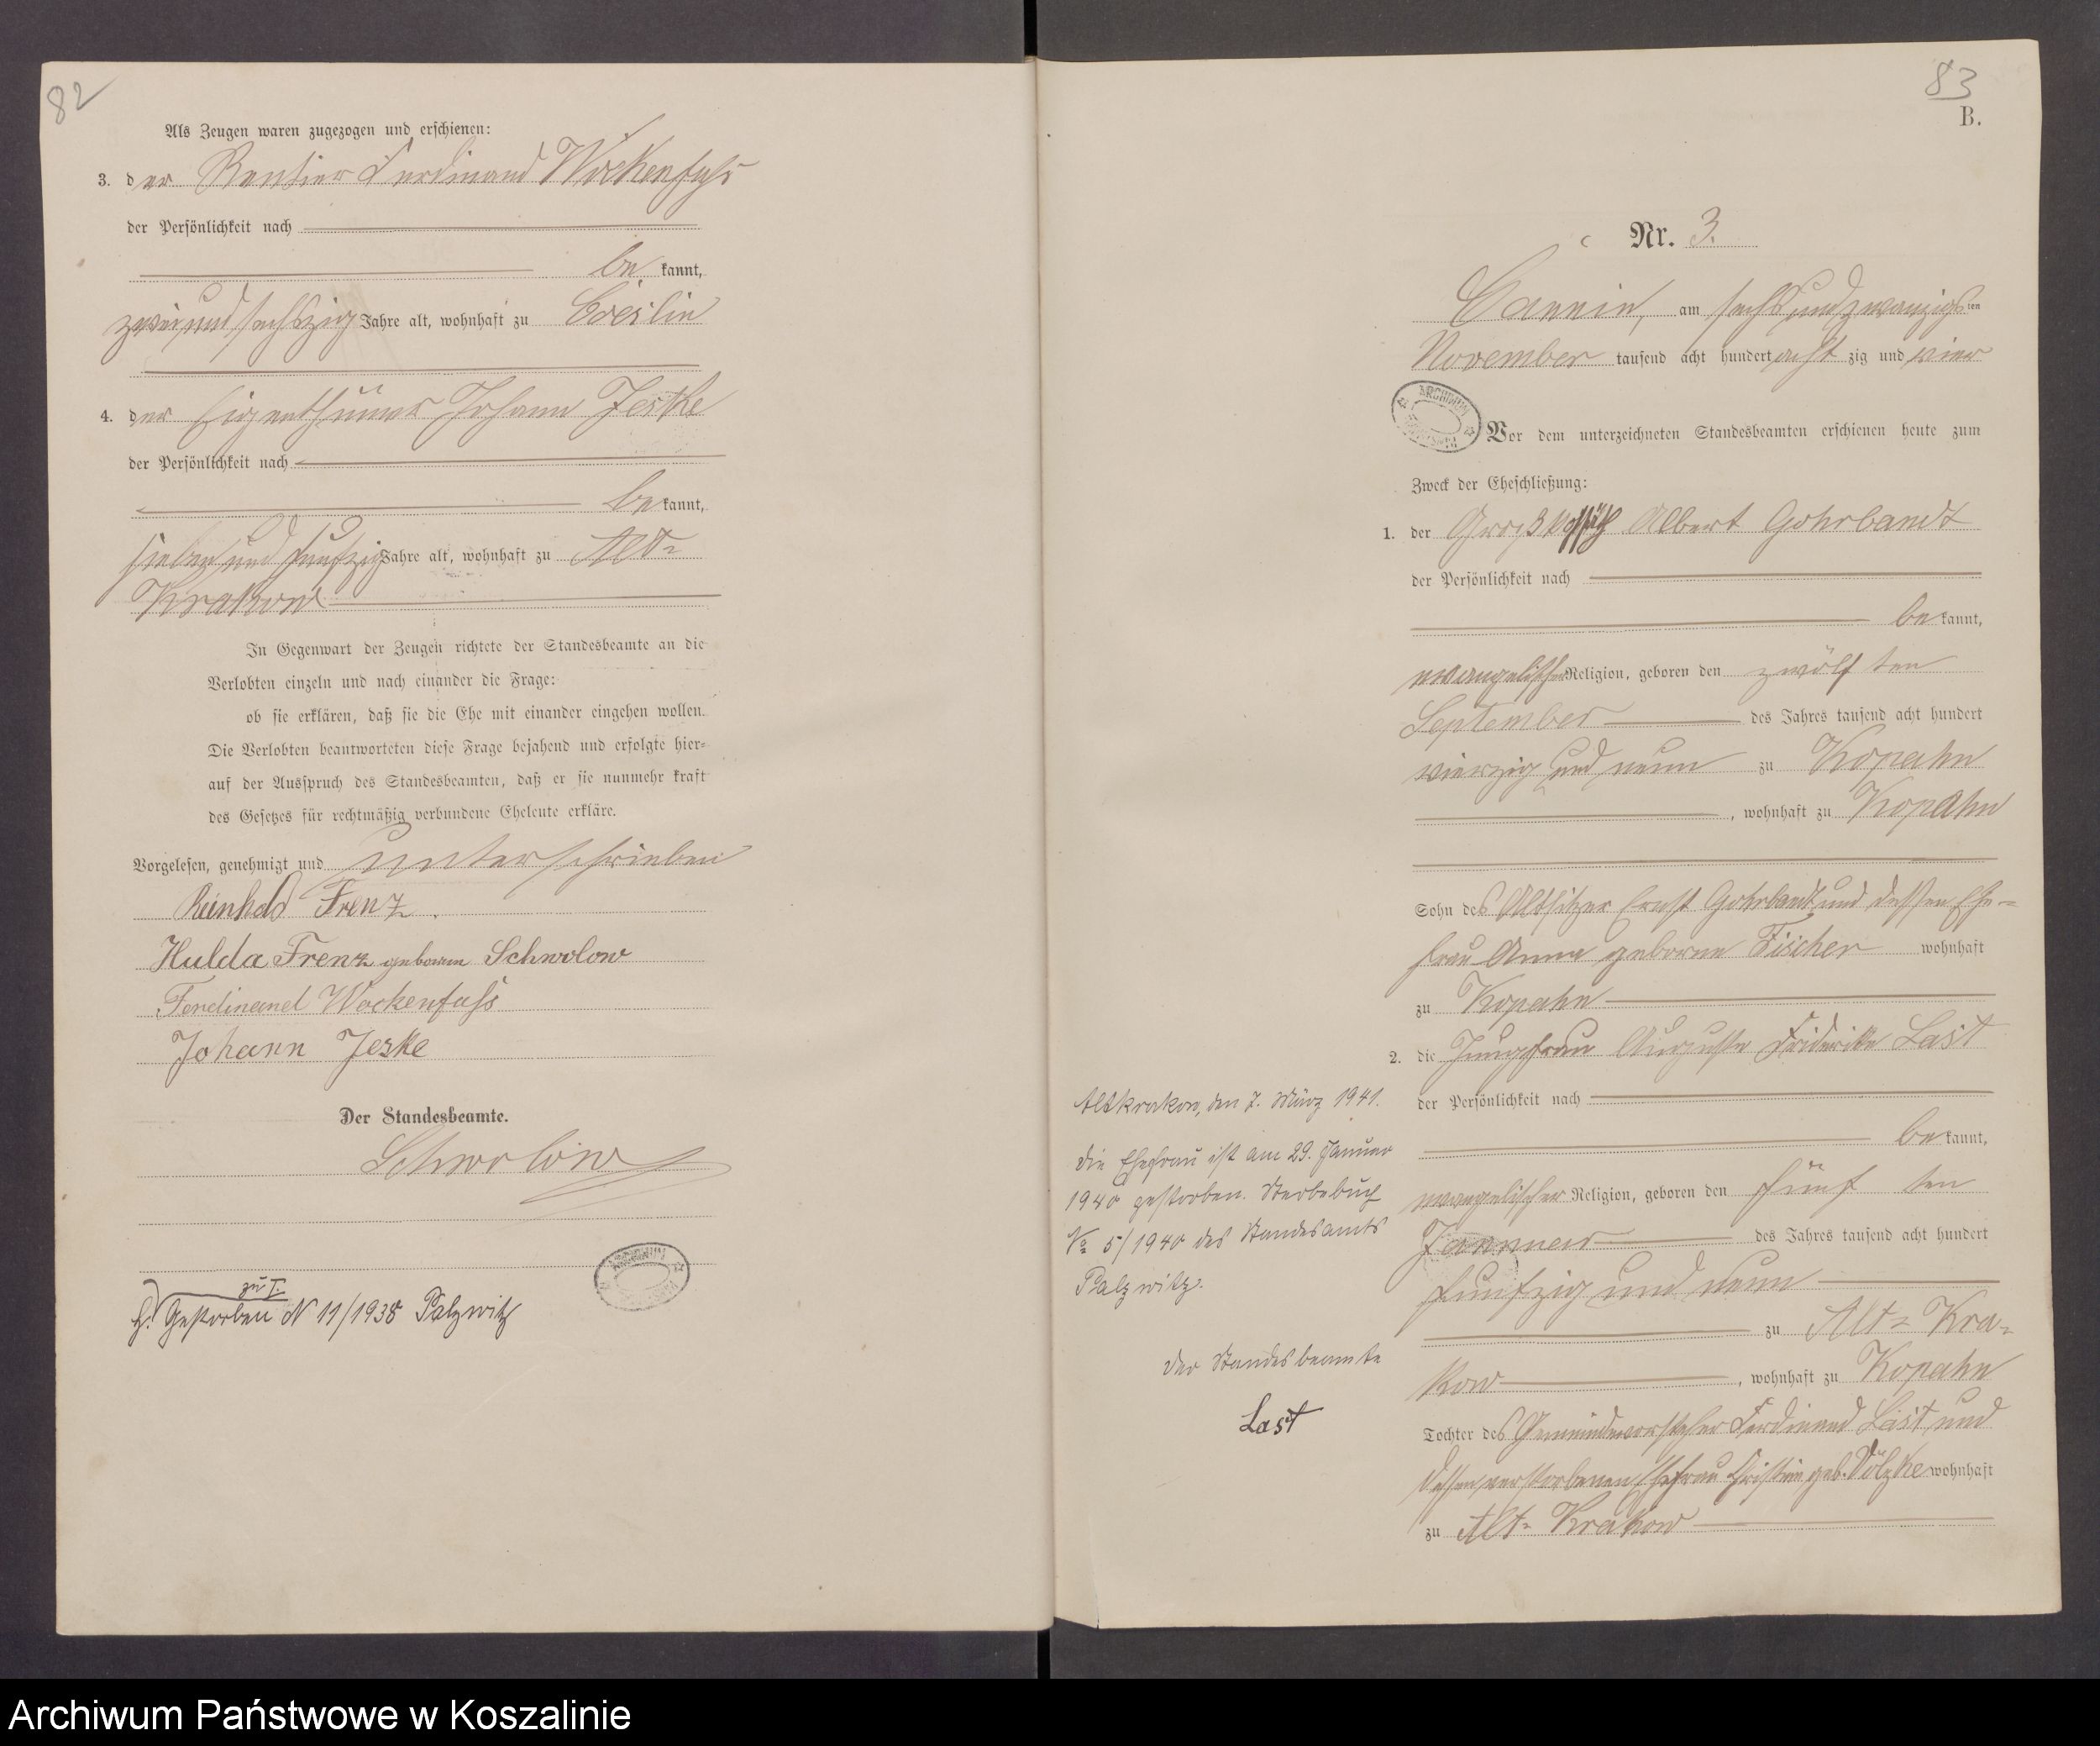 82
Als Zeugen waren zugezogen und erschienen:
3. der Rentier Ferdinand Wockenfuß
der Persönlichkeit nach
be kannt,
zwei und sechszig Jahre alt, wohnhaft zu Coeslin
4. der Eigenthümer Johann Jeske
der Persönlichkeit nach
be kannt,
sieben und funfzig Jahre alt, wohnhaft zu Alt-
Krakow
In Gegenwart der Zeugen richtete der Standesbeamte an die
Verlobten einzeln und nach einander die Frage:
ob sie erklären, daß sie die Ehe mit einander eingehen wollen.
Die Verlobten beantworteten diese Frage bejahend und erfolgte hier-
auf der Ausspruch des Standesbeamten, daß er sie nunmehr kraft
des Gesetzes für rechtmäßig verbundene Eheleute erkläre.
Vorgelesen, genehmigt und unterschrieben
Reinhold Frenz.
Hulda Frenz geborene Schwolow
Ferdinand Wockenfuß
Johann Jeske
Der Standesbeamte.
Schwolow
zu I.
Gestorben N 11/1938 Palzwitz
83
B.
Nr. 3.
Cannin, am sechs und zwanzigsten
November tausend acht hundert acht zig und vier
ARCHIWUM
Vor dem unterzeichneten Standesbeamten erschienen heute zum
Zweck der Eheschließung:
1. der Großkossäth Albert Gohrbandt
der Persönlichkeit nach
be kannt,
evangelischer Religion, geboren den zwölf ten
September des Jahres tausend acht hundert
vierzig und neun zu Kopahn
, wohnhaft zu Kopahn
Sohn des Altsitzer Ernst Gohrbandt und dessen Ehe-
frau Anna geborene Fischer wohnhaft
zu Kopahn
2. die Jungfrau Auguste Friderike Last
der Persönlichkeit nach
be kannt,
evangelischer Religion, geboren den fünf ten
Januar des Jahres tausend acht hundert
funfzig und neun
zu Alt- Kra-
kow, wohnhaft zu Kopahn
Tochter des Gemeindevorsteher Ferdinand Last und
dessen verstorbenen Ehefrau Christine geb. Völzke wohnhaft
zu Alt- Krakow
Altkrakow, den 7. März 1941.
Die Ehefrau ist am 29. Januar
1940 gestorben. Sterbebuch
No 5/1940 des Standesamts
Palzwitz.
Der Standesbeamte
Last
ARCHIWUM
Archiwum Państwowe w Koszalinie